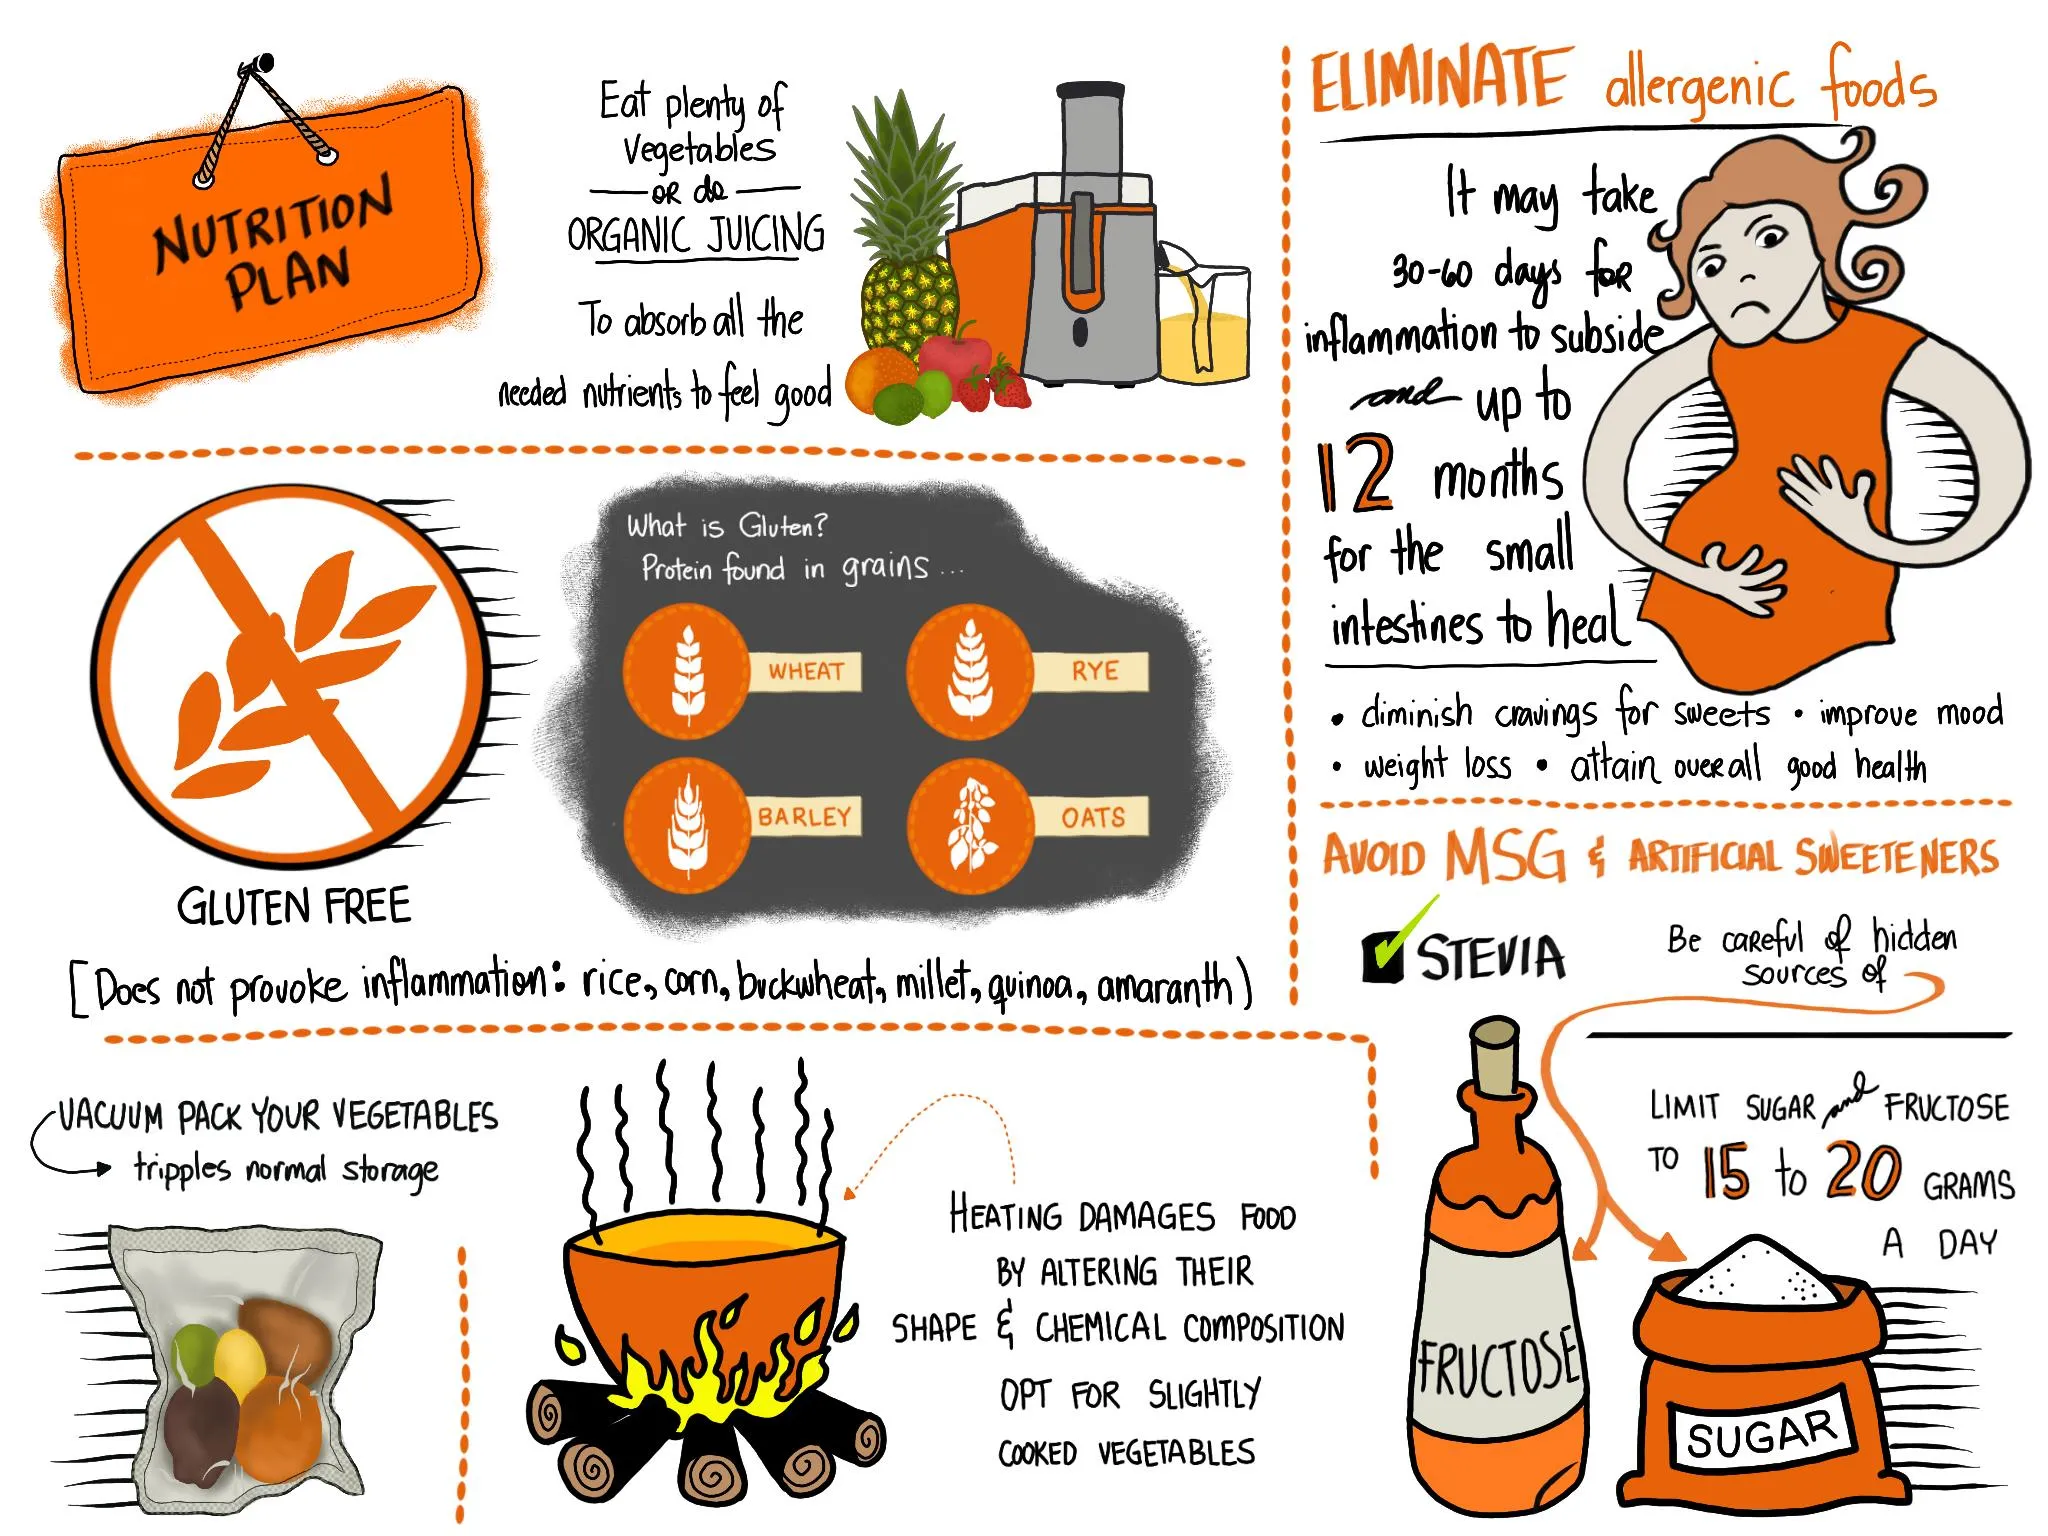 NUTRITION
PLAN
Eat plenty of
Vegetables
OR do
ORGANIC JUICING
To absorb all the
needed nutrients to feel good
ELIMINATE allergenic foods
It may take
30-60 days for
inflammation to subside
and up to
12 months
for the small
intestines to heal
• diminish cravings for sweets • improve mood
• weight loss • attain overall good health
What is Gluten?
Protein found in grains ...
WHEAT
RYE
BARLEY
OATS
GLUTEN FREE
[Does not provoke inflammation: rice, corn, buckwheat, millet, quinoa, amaranth)
AVOID MSG & ARTIFICIAL SWEETENERS
STEVIA
Be careful of hidden
sources of
LIMIT SUGAR and FRUCTOSE
TO 15 to 20 GRAMS
A DAY
FRUCTOSE
SUGAR
VACUUM PACK YOUR VEGETABLES
tripples normal storage
HEATING DAMAGES FOOD
BY ALTERING THEIR
SHAPE & CHEMICAL COMPOSITION
OPT FOR SLIGHTLY
COOKED VEGETABLES